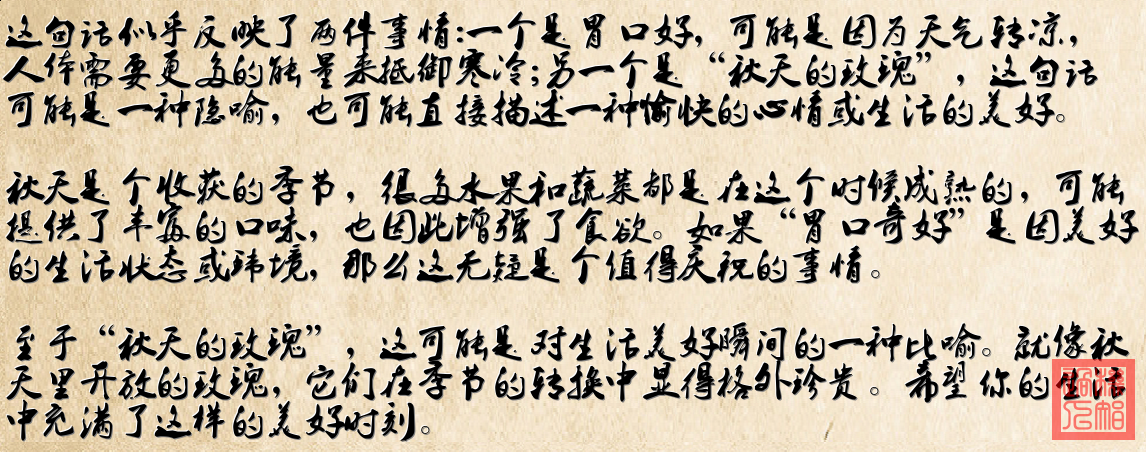 这句话似乎反映了两件事情:一个是胃口好，可能是因为天气转凉，
人体需要更多的能量来抵御寒冷;另一个是“秋天的玫瑰”，这句话
可能是一种隐喻，也可能直接描述一种愉快的心情或生活的美好。
秋天是个收获的季节，很多水果和蔬菜都是在这个时候成熟的，可能
提供了丰富的口味，也因此增强了食欲。如果“胃口奇好”是因美好
的生活状态或环境，那么这无疑是个值得庆祝的事情。
至于“秋天的玫瑰”，这可能是对生活美好瞬间的一种比喻。就像秋
天里开放的玫瑰，它们在季节的转换中显得格外珍贵。希望你的生活
中充满了这样的美好时刻。